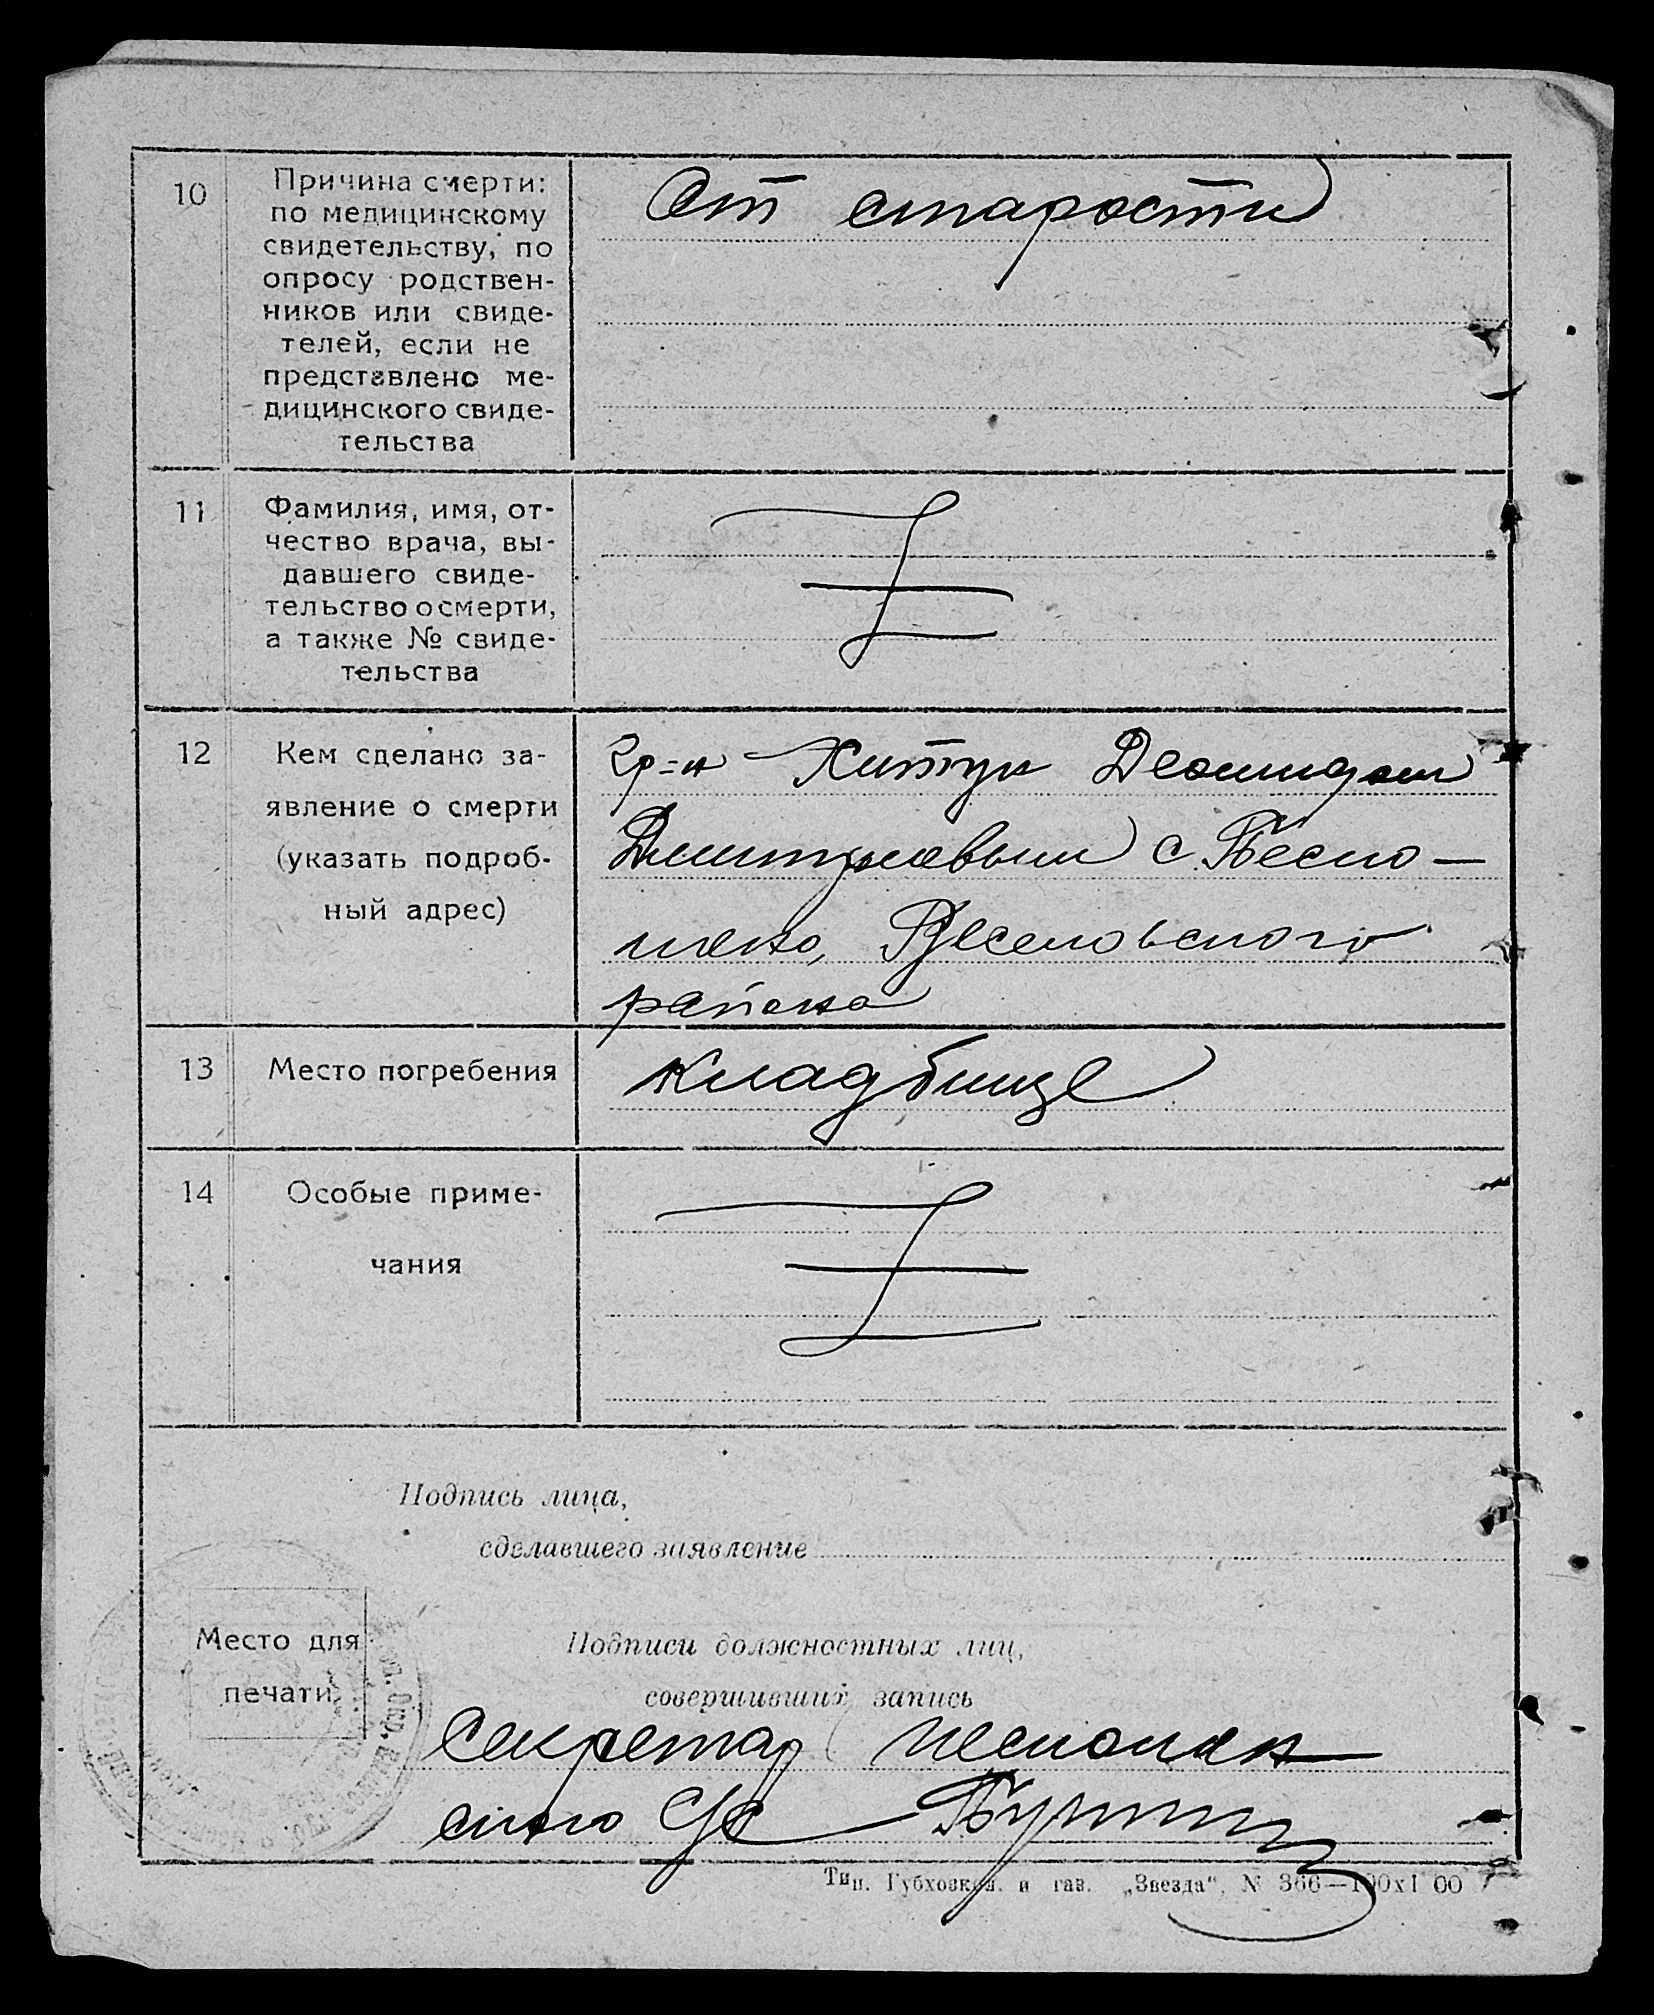 10
Причина смерти:
по медицинскому
свидетельству, по
опросу родствен-
ников или свиде-
телей, если не
представлено ме-
дицинского свиде-
тельства
От старости
11
Фамилия, имя, от-
чество врача, вы-
давшего свиде-
тельство о смерти,
а также № свиде-
тельства
12
Кем сделано за-
явление о смерти
(указать подроб-
ный адрес)
гр=н Хитун Леонидом
Дмитриевым с.
Веселовского
района
13
Место погребения
кладбище
14
Особые приме-
чания
Подпись лица,
сделавшего заявление
Место для
печати
Подписи должностных лиц,
совершивших запись
Секретар
ского С/с
Тип. Губхозизд. и газ. „Звезда", №